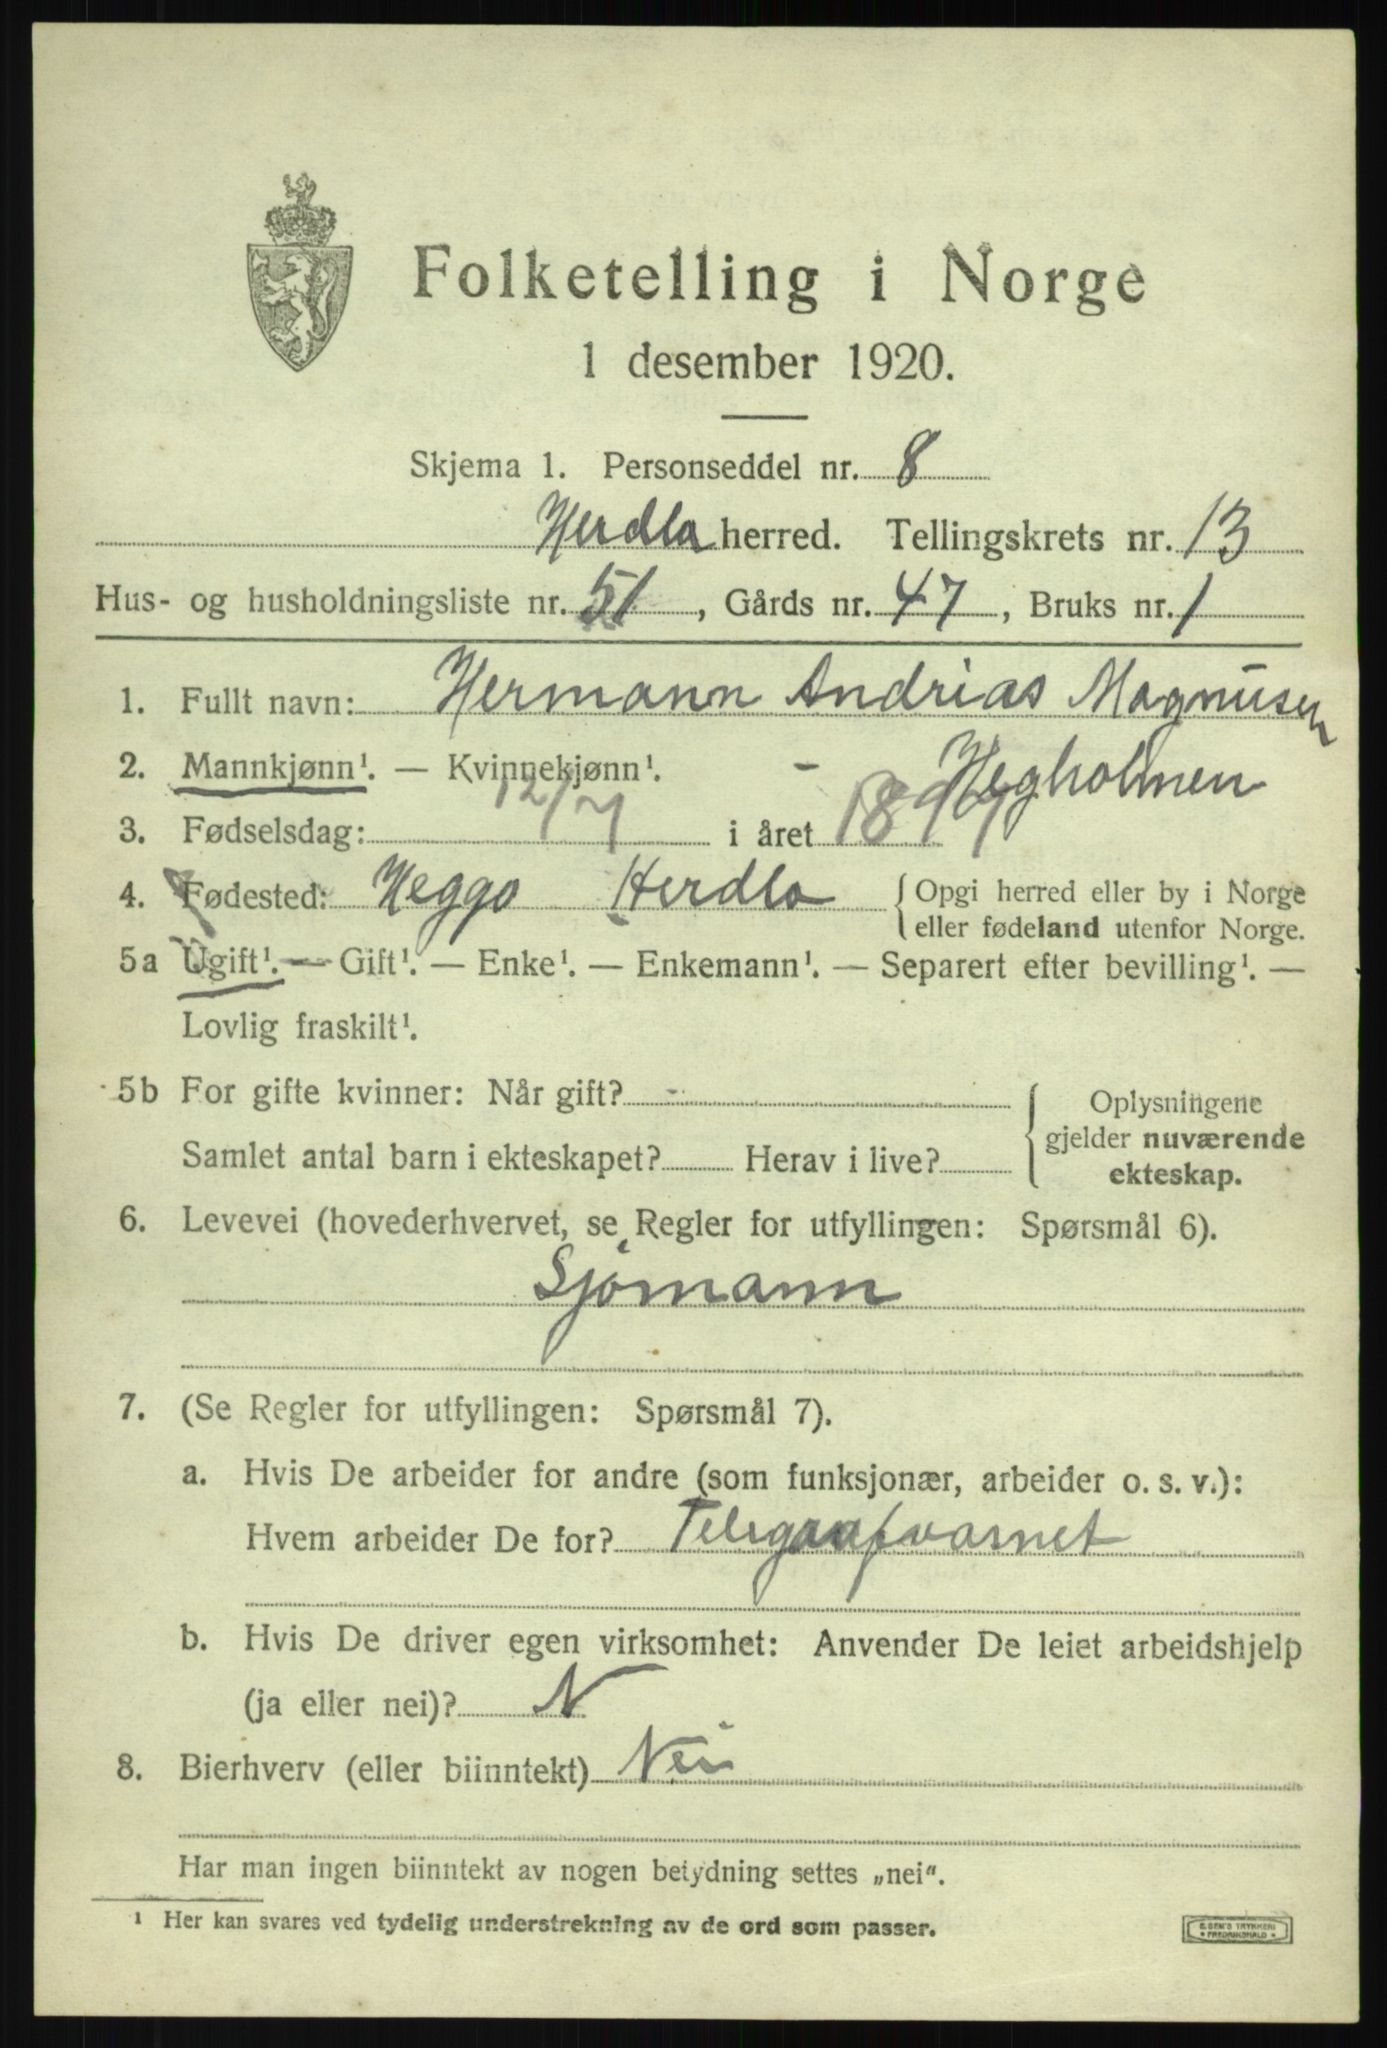 Folketelling i Norge
1 desember 1920.
Skjema 1. Personseddel nr. 8
Herdla herred. Tellingskrets nr. 13
Hus- og husholdningsliste nr. 51, Gårds nr. 47, Bruks nr. 1
1. Fullt navn: Hermann Andrias Magnusen
2. Mannkjønn¹. — Kvinnekjønn¹. - Hegholmen
3. Fødselsdag: 12/7 i året
4. Fødested: Heggo Herdla { Opgi herred eller by i Norge
eller fødeland utenfor Norge.
5a Ugift¹. — Gift¹. — Enke¹. — Enkemann¹. — Separert efter bevilling¹. —
Lovlig fraskilt¹.
5b For gifte kvinner: Når gift? - { Oplysningene
gjelder nuværende
Samlet antal barn i ekteskapet? Herav i live? ekteskap.
6. Levevei (hovederhvervet, se Regler for utfyllingen: Spørsmål 6).
Sjømann
7. (Se Regler for utfyllingen: Spørsmål 7).
a. Hvis De arbeider for andre (som funksjonær, arbeider o. s. v.):
Hvem arbeider De for? Telegrafvasnet
b. Hvis De driver egen virksomhet: Anvender De leiet arbeidshjelp
(ja eller nei)? N
8. Bierhverv (eller biinntekt) Nei
Har man ingen biinntekt av nogen betydning settes „nei“.
¹ Her kan svares ved tydelig understrekning av de ord som passer.
E. SEM'S TRYKKERI
* FREDRIKSHALD *